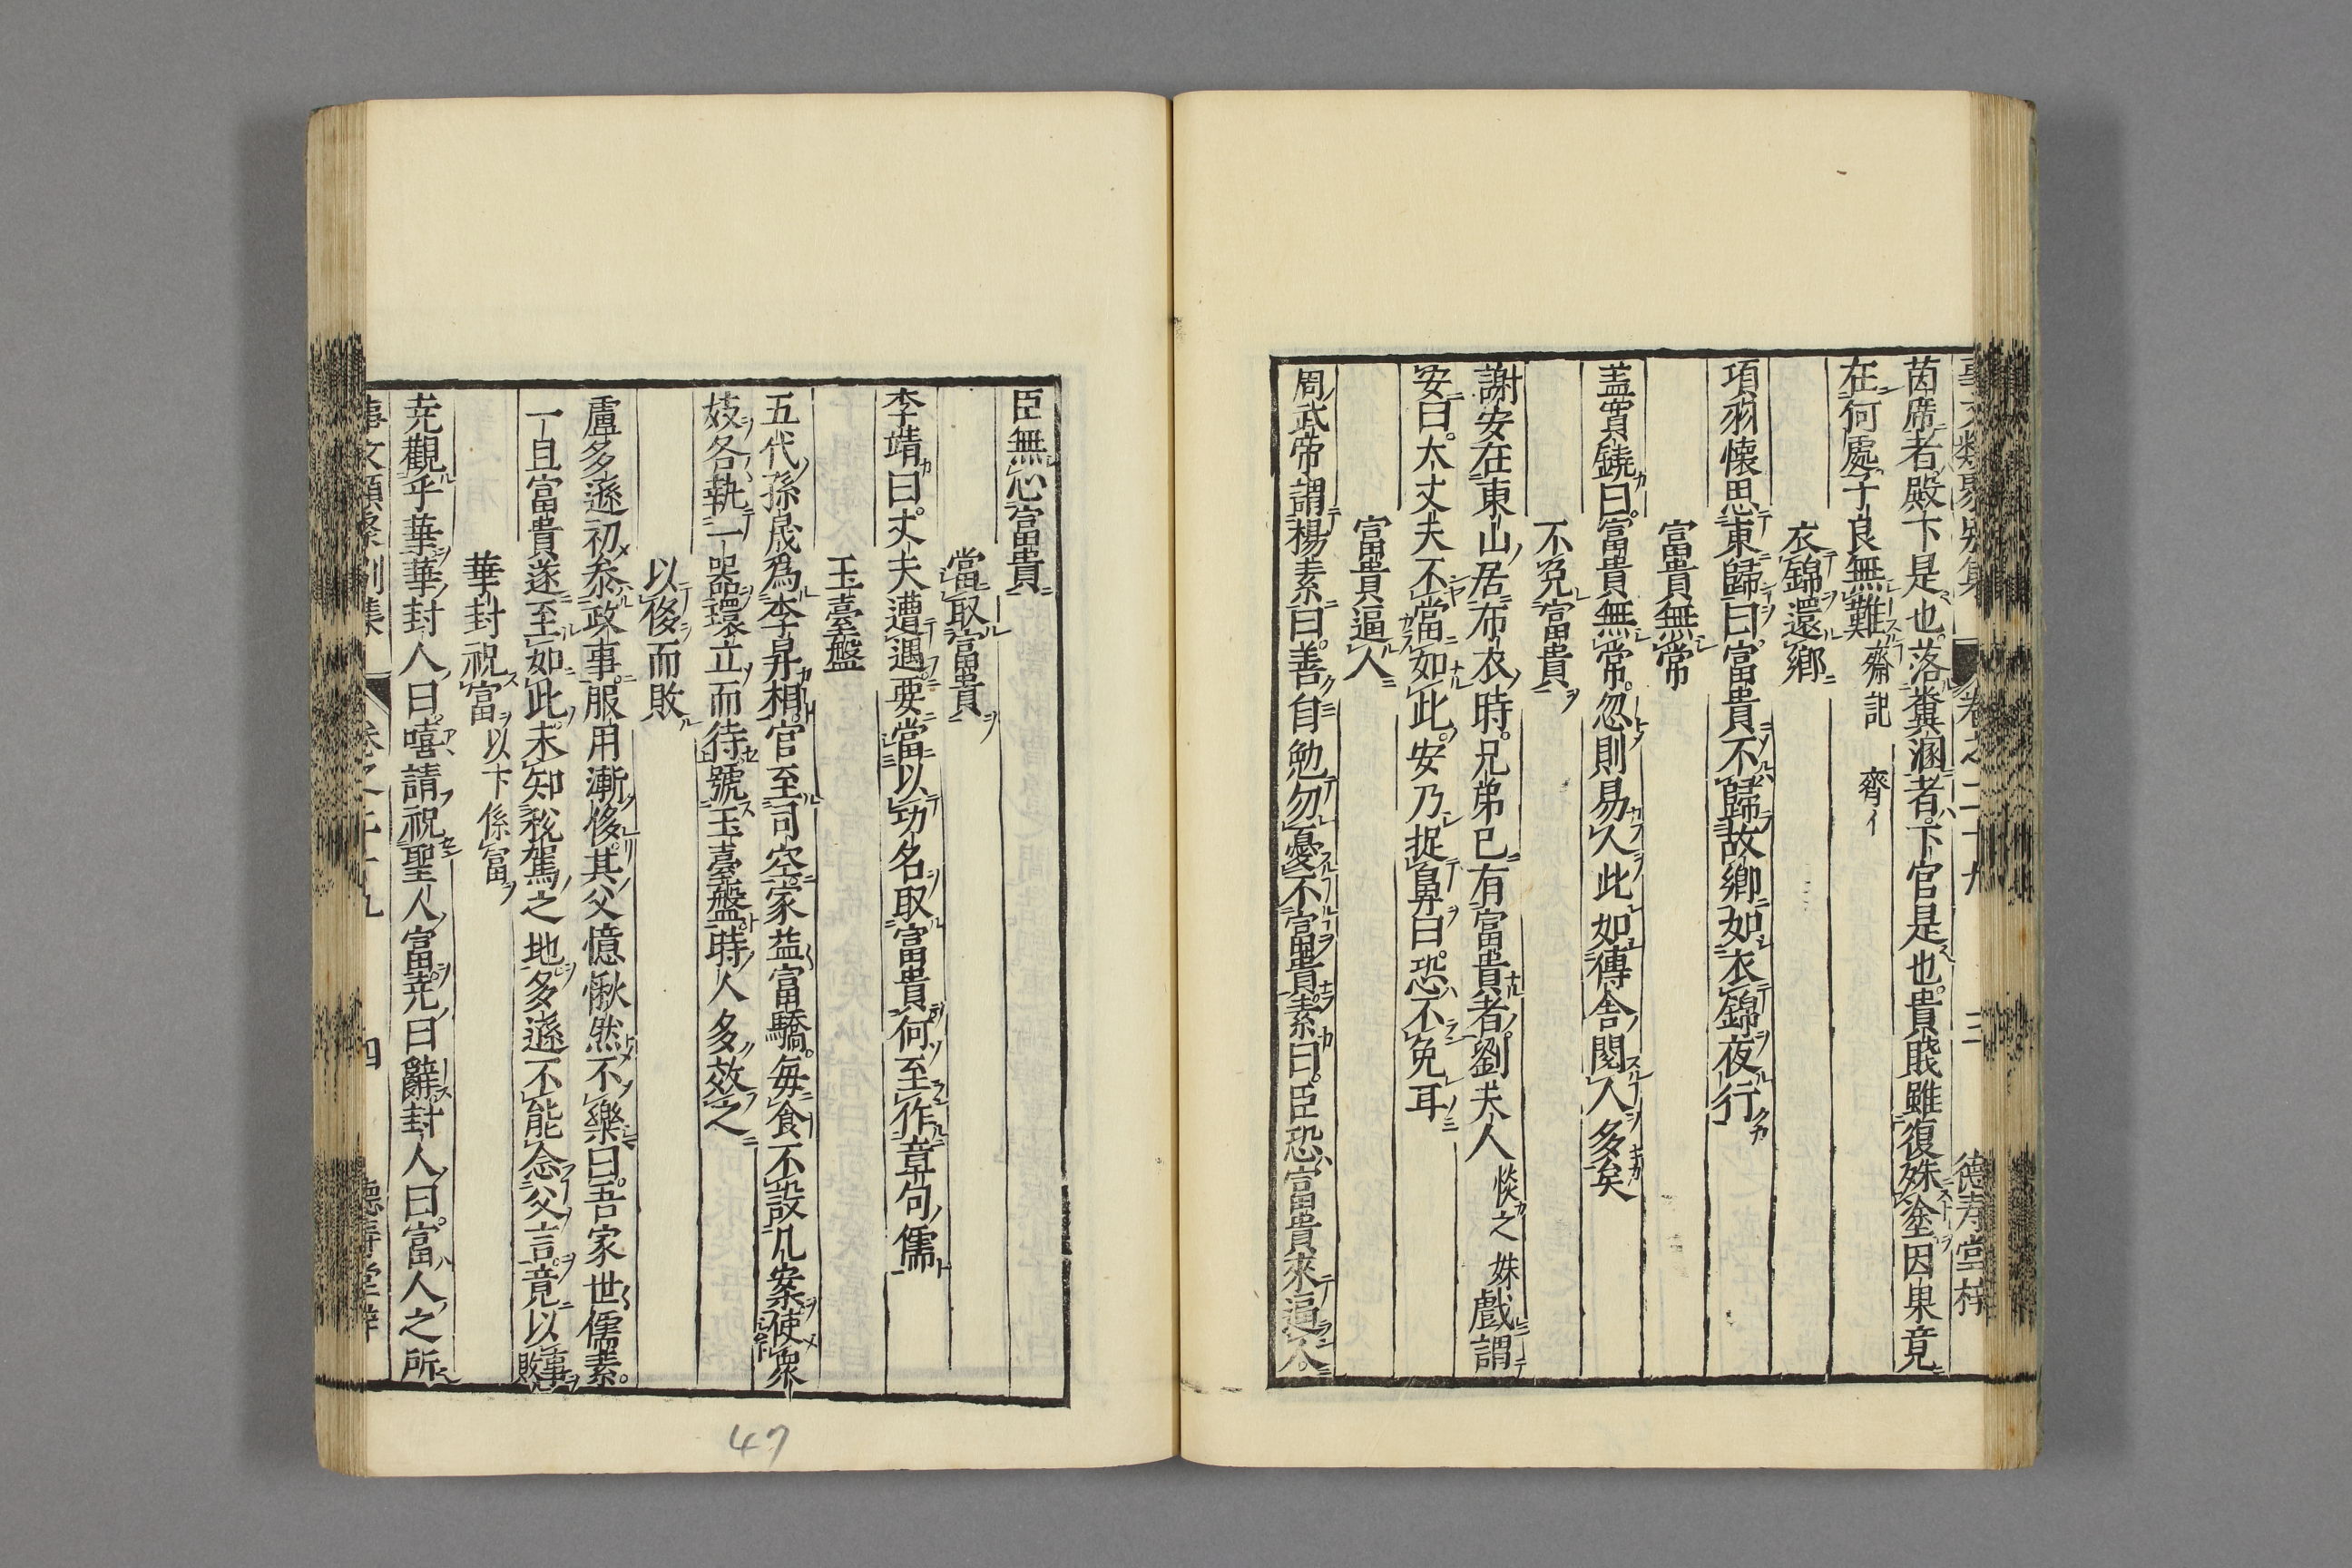 茵席者殿下是也落糞溷者下官是也貴賤雖復殊塗因果竟
在何處子良無難齋記 齊イ
衣錦還鄉
項羽懷思東歸曰富貴不歸故鄉如衣錦夜行
富貴無常
盖寬饒曰富貴無常忽則易人此如傳舍閱人多矣
不免富貴
謝安在東山居布衣時兄弟已有富貴者劉夫人惔之妹戲謂
安曰大丈夫不當如此安乃捉鼻曰恐不免耳
富貴逼人
周武帝謂楊素曰善自勉勿憂不富貴素曰臣恐富貴來逼人
臣無心富貴
當取富貴
李靖曰丈夫遭遇要當以功名取富貴何至作章句儒
玉臺盤
五代孫晟為李昇相官至司空家益富驕每食不設几案使衆
妓各執一器環立而待號玉臺盤時人多效之
以侈而敗
盧多遜初叅政事服用漸侈其父億愀然不樂曰吾家世儒素
一旦富貴遂至如此未知稅駕之地多遜不能念父言竟以事敗
華封祝富 以下係富
尭觀乎華華封人曰嘻請祝聖人富尭曰辭封人曰富人之所
47